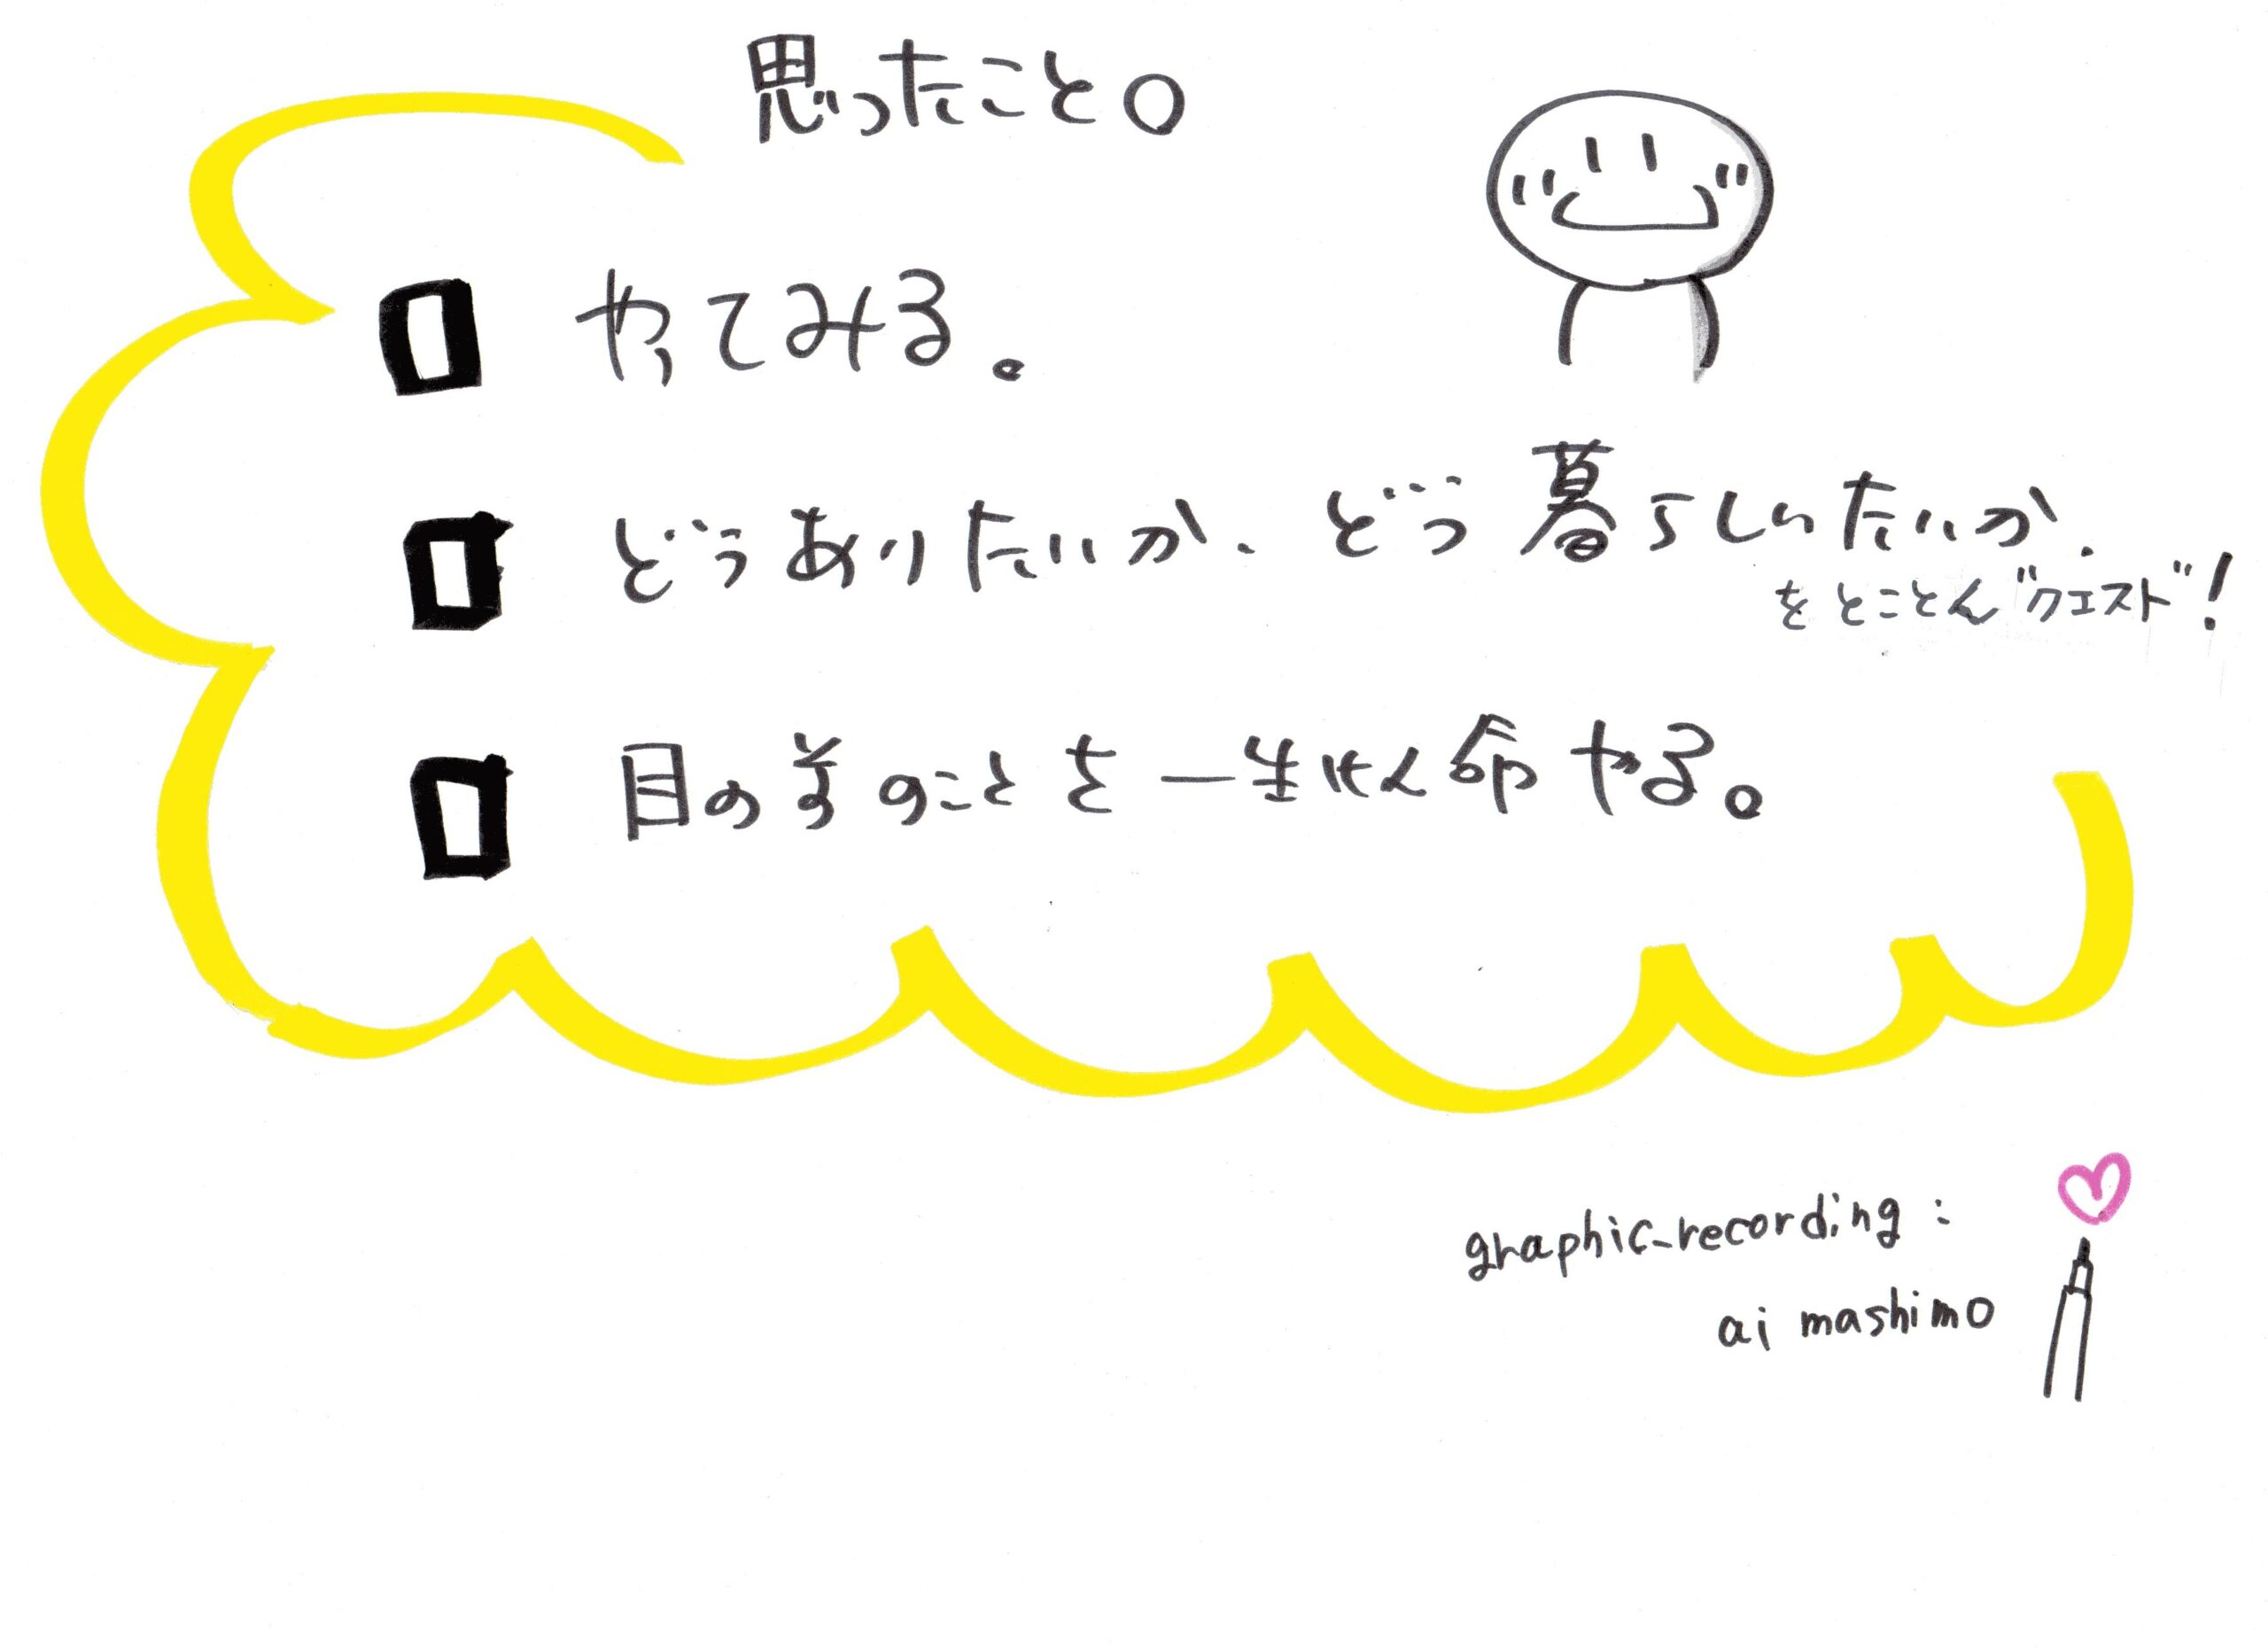 思ったこと。
やってみる。
どうありたいか、どう暮らしいたいか、
をとことん"クエスト"!
目の前のことを一生けん命やる。
graphic-recording:
ai mashimo